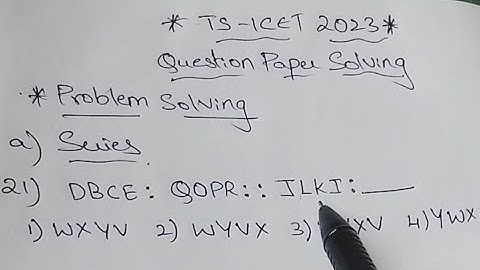 * TS-ICET 2023*
Question Paper Solving
* Problem Solving
a) Series
21) DBCE: QOPR:: JLKI:____
1) WXYV 2) WYVX 3) XV 4) YWX